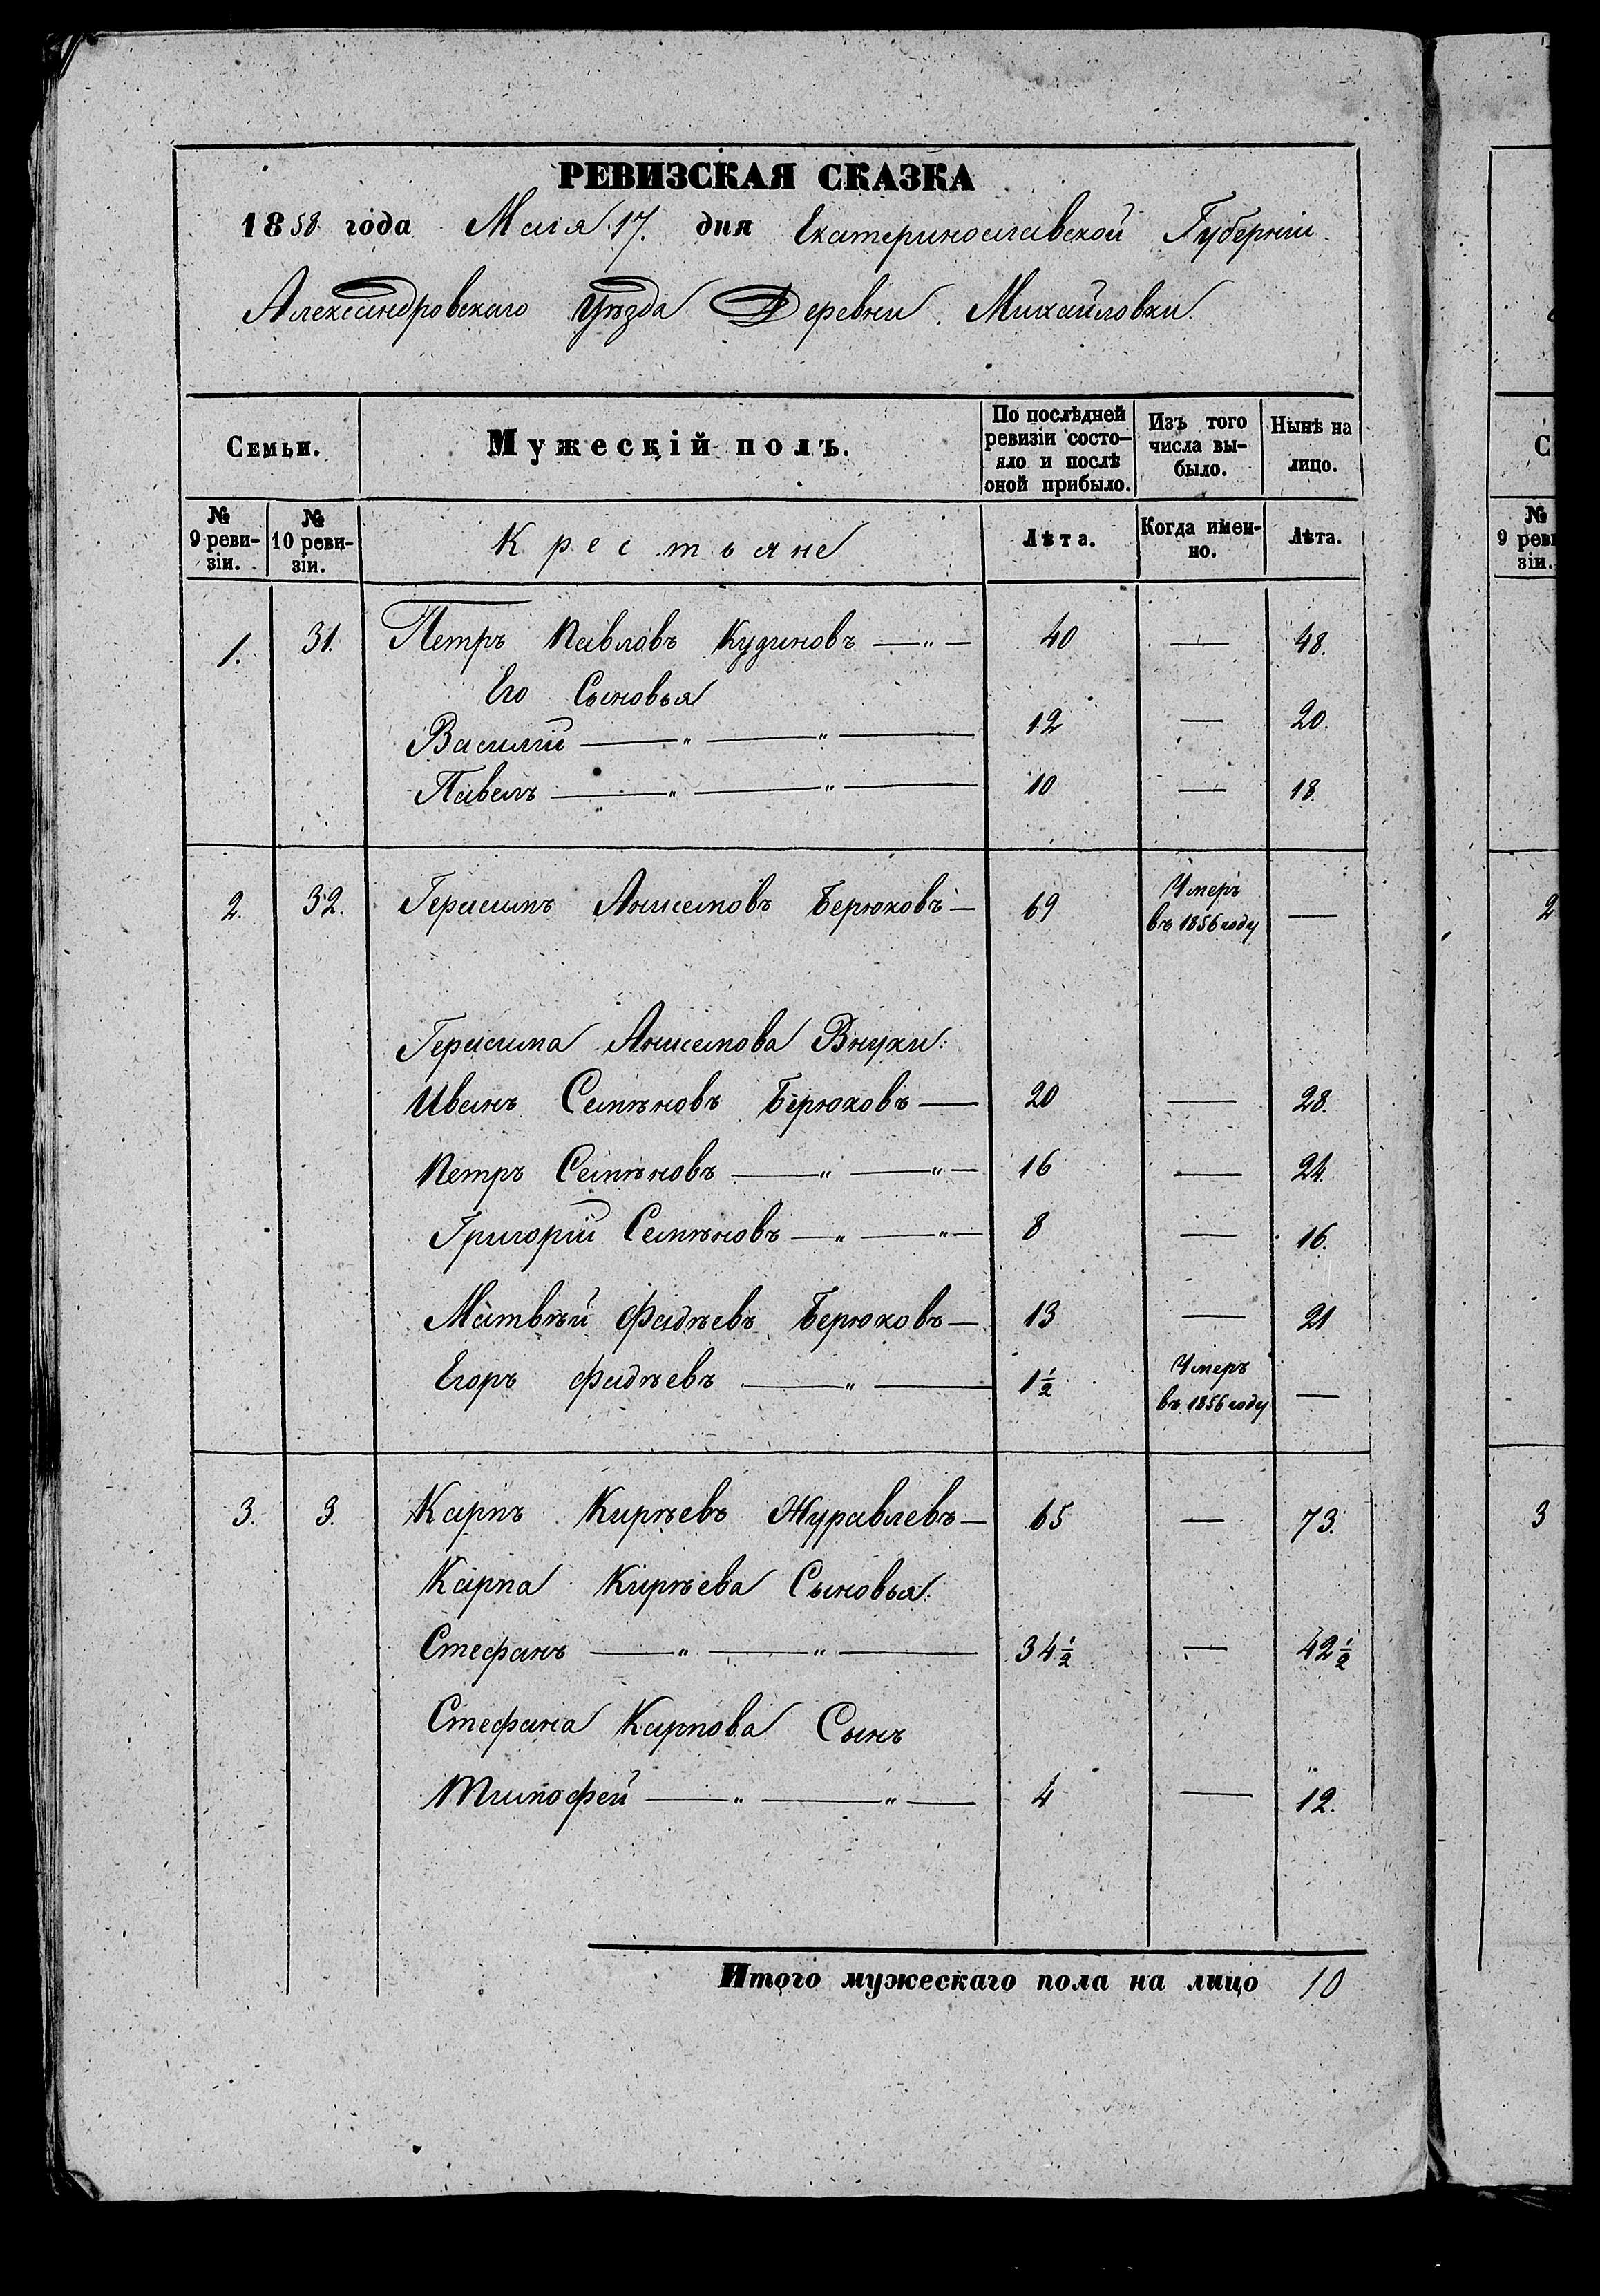 РЕВИЗСКАЯ СКАЗКА
1858 года Маія 17. дня Екатеринославской Губерніи
Александровскаго Уѣзда Деревни Михайловки.
Семьи. Мужескій полъ. По послѣдней ревизіи состо-яло и послѣ оной прибыло. Изъ того числа вы-было. Нынѣ на лицо.
№ 9 реви-зіи. № 10 реви-зіи. Крестьяне Лѣта. Когда имен-но. Лѣта.
1. 31. Петръ Павловъ Кудиновъ — " — 40 — 48.
Его Сыновья
Василій — " — " — 12 — 20.
Павелъ — " — " — 10 — 18.
2. 32. Герасимъ Анисимовъ Берюковъ — 69 Умеръ въ 1856 году —
Герасима Анисимова Внуки:
Иванъ Семѣновъ Берюковъ — 20 — 28.
Петръ Семѣновъ — " — " — 16 — 24.
Григорій Семѣновъ — " — " — 8 — 16.
Матвѣй Фадѣевъ Берюковъ — 13 — 21
Егоръ Фадѣевъ — " — 1½ Умеръ въ 1856 году —
3. 3. Карпъ Кирѣевъ Журавлевъ — 65 — 73.
Карпа Кирѣева Сыновья:
Стефанъ — " — " — 34½ — 42½
Стефана Карпова Сынъ
Тимофей — " — " — 4 — 12.
Итого мужескаго пола на лицо 10
С
№ 9 реви
зіи.
2
3